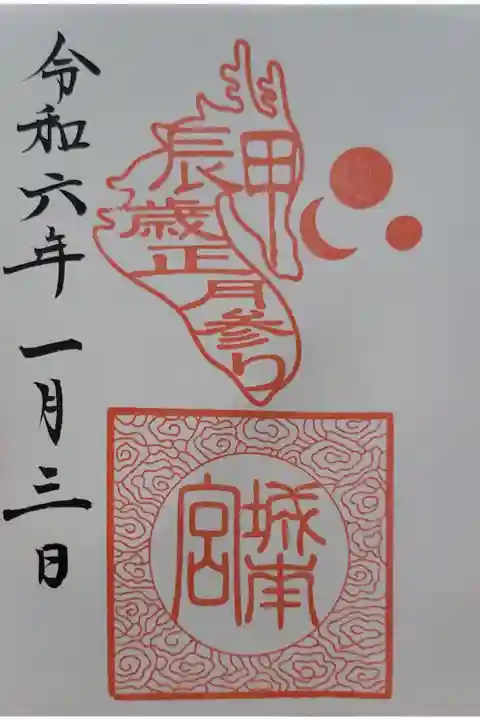 甲
辰
歳
正
月
参
り
城南
宮
令和六年 一月三日